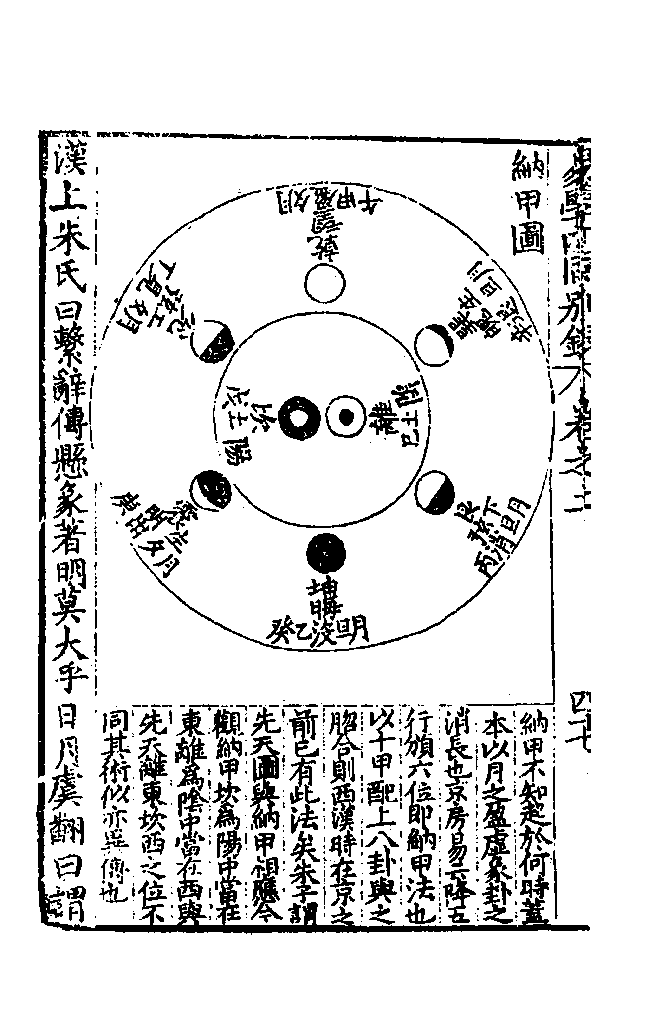 納甲圖
月夕盈甲壬
望
乾
月旦退辛
生魄
巽
月旦消丙
下弦
艮
月旦没乙癸
晦
坤
月夕出庚
生明
震
月夕見丁
上弦
兌
離
己
陰
坎
戊
陽
納甲不知起於何時蓋
本以月之盈虛象卦之
消長也京房易云降五
行頒六位即納甲法也
以十甲配上八卦與之
脗合則西漢時在京之
前已有此法矣朱子謂
先天圖與納甲相應今
觀納甲坎為陽中當在
東離為陰中當在西與
先天離東坎西之位不
同其術似亦異傳也
漢上朱氏曰繫辭傳懸象著明莫大乎日月虞翻曰謂